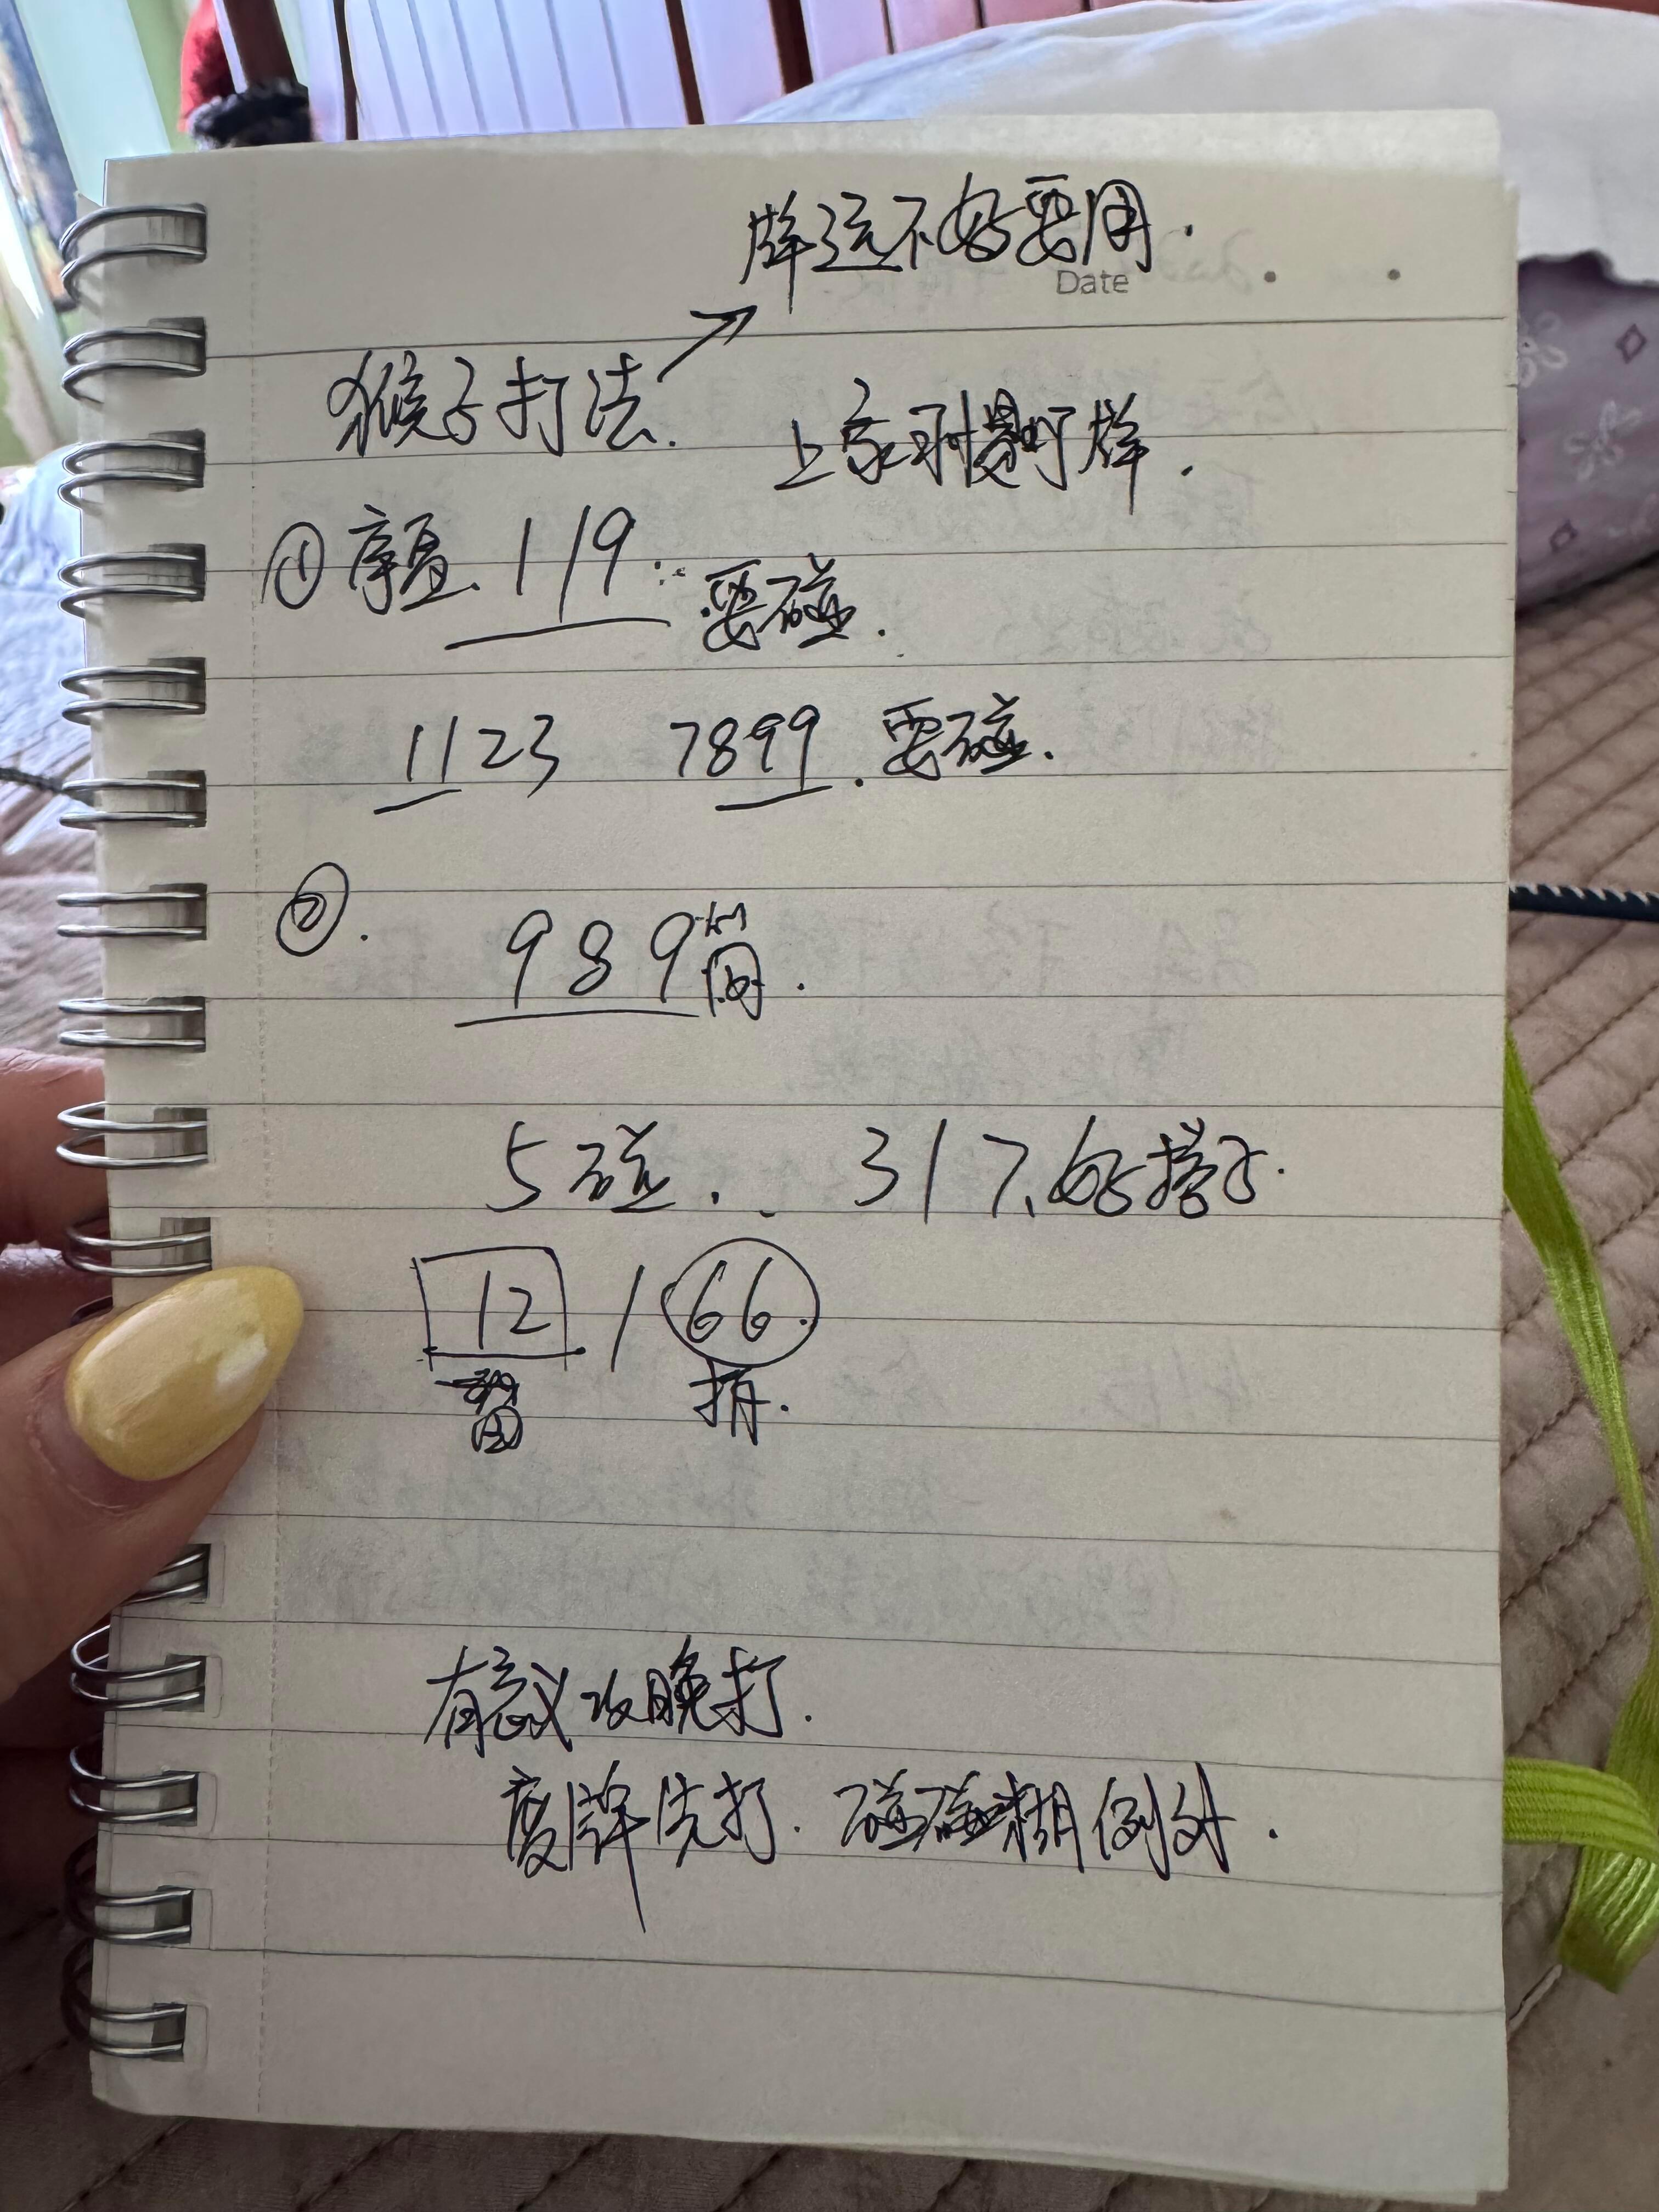 牌运不好要用.
Date
猴子打法.
上家不打牌.
① 序盘. 119. 要碰.
1123 7899. 要碰.
②. 989筒.
5碰. 317. 好搭子.
12 / 66.
留 拆.
有意义攻晚打.
废牌先打. 碰碰糊例外.